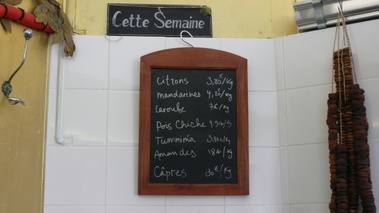 Cette Semaine
Citrons 3,80€/kg
mandarines 4,20/kg
Caroube 7€/kg
Pois Chiche
Tumminia
Amandes 18€/kg
Câpres 30€/kg